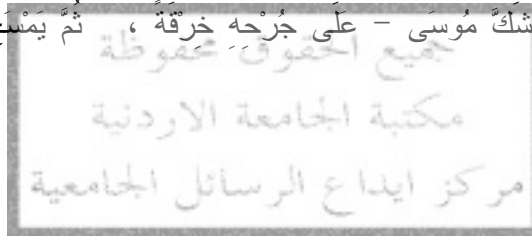 شَكَّ مُوسَى – عَلَى جُرْحِهِ خِرْقَةً ، ثُمَّ يَمْسَحَ
جميع الحقوق محفوظة
مكتبة الجامعة الاردنية
مركز ايداع الرسائل الجامعية